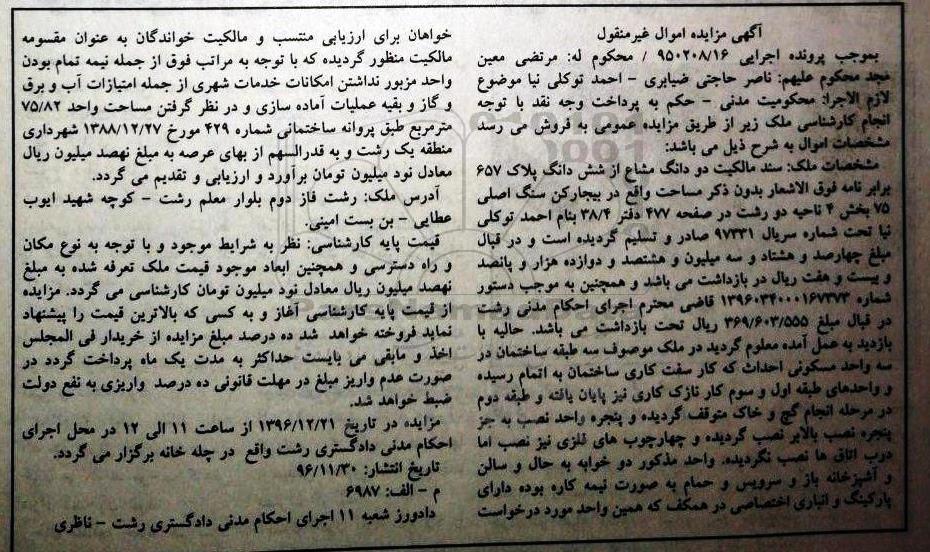 آگهی مزایده اموال غیرمنقول
بموجب پرونده اجرایی ۹۵۰۲۰۸/۱۶ / محکوم له: مرتضی معین
مجد محکوم علیهم: ناصر حاجتی ضیابری - احمد توکلی نیا موضوع
لازم الاجرا: محکومیت مدنی - حکم به پرداخت وجه نقد با توجه
انجام کارشناسی ملک زیر از طریق مزایده عمومی به فروش می رسد
مشخصات اموال به شرح ذیل می باشد:
مشخصات ملک: سند مالکیت دو دانگ مشاع از شش دانگ پلاک ۶۵۷
برابر نامه فوق الاشعار بدون ذکر مساحت واقع در بیجارکن سنگ اصلی
۷۵ بخش ۴ ناحیه دو رشت در صفحه ۴۷۷ دفتر ۳۸/۴ بنام احمد توکلی
نیا تحت شماره سریال ۹۷۳۳۱ صادر و تسلیم گردیده است و در قبال
مبلغ چهارصد و هشتاد و سه میلیون و هشتصد و دوازده هزار و پانصد
و بیست و هفت ریال در بازداشت می باشد و همچنین به موجب دستور
شماره ۱۳۹۶۰۳۴۰۰۰۱۶۷۳۷۳ قاضی محترم اجرای احکام مدنی رشت
در قبال مبلغ ۳۶۹/۶۰۳/۵۵۵ ریال تحت بازداشت می باشد. حالیه با
بازدید به عمل آمده معلوم گردید در ملک موصوف سه طبقه ساختمان در
سه واحد مسکونی احداث که کار سفت کاری ساختمان به اتمام رسیده
و واحدهای طبقه اول و سوم کار نازک کاری نیز پایان یافته و طبقه دوم
در مرحله انجام گچ و خاک متوقف گردیده و پنجره واحد نصب به جز
پنجره نصب بالابر نصب گردیده و چهارچوب های فلزی نیز نصب اما
درب اتاق ها نصب نگردیده. واحد مذکور دو خوابه به حال و سالن
و آشپزخانه باز و سرویس و حمام به صورت نیمه کاره بوده دارای
پارکینگ و انباری اختصاصی در همکف که همین واحد مورد درخواست
خواهان برای ارزیابی منتسب و مالکیت خواندگان به عنوان مقسومه
مالکیت منظور گردیده که با توجه به مراتب فوق از جمله نیمه تمام بودن
واحد مزبور نداشتن امکانات خدمات شهری از جمله امتیازات آب و برق
و گاز و بقیه عملیات آماده سازی و در نظر گرفتن مساحت واحد ۷۵/۸۲
مترمربع طبق پروانه ساختمانی شماره ۴۲۹ مورخ ۱۳۸۸/۱۲/۲۷ شهرداری
منطقه یک رشت و به قدرالسهم از بهای عرصه به مبلغ نهصد میلیون ریال
معادل نود میلیون تومان برآورد و ارزیابی و تقدیم می گردد.
آدرس ملک: رشت فاز دوم بلوار معلم رشت - کوچه شهید ایوب
عطایی - بن بست امینی.
قیمت پایه کارشناسی: نظر به شرایط موجود و با توجه به نوع مکان
و راه دسترسی و همچنین ابعاد موجود قیمت ملک تعرفه شده به مبلغ
نهصد میلیون ریال معادل نود میلیون تومان کارشناسی می گردد. مزایده
از قیمت پایه کارشناسی آغاز و به کسی که بالاترین قیمت را پیشنهاد
نماید فروخته خواهد شد ده درصد مبلغ مزایده از خریدار فی المجلس
اخذ و مابقی می بایست حداکثر به مدت یک ماه پرداخت گردد در
صورت عدم واریز مبلغ در مهلت قانونی ده درصد واریزی به نفع دولت
ضبط خواهد شد.
مزایده در تاریخ ۱۳۹۶/۱۲/۲۱ از ساعت ۱۱ الی ۱۲ در محل اجرای
احکام مدنی دادگستری رشت واقع در چله خانه برگزار می گردد.
تاریخ انتشار: ۹۶/۱۱/۳۰
م - الف: ۶۹۸۷
دادورز شعبه ۱۱ اجرای احکام مدنی دادگستری رشت - ناظری